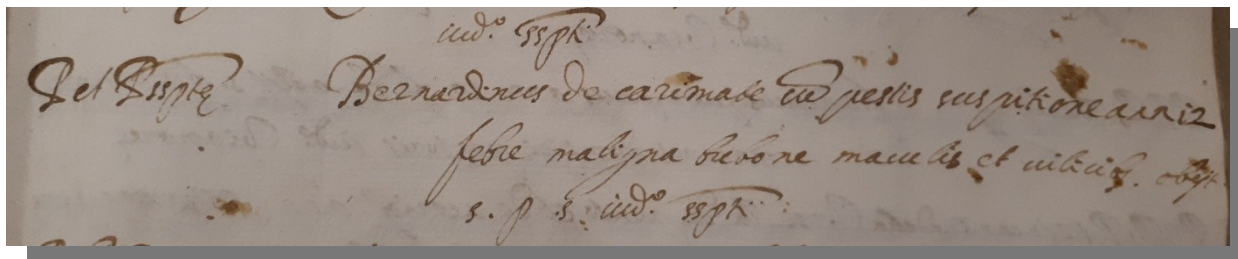 iud.º sspti
P et P sspte Bernardinus de carimate cu pestis suspitione an n 12
febre maligna bubone maculis et obyt
s. p. s. iud.º sspti